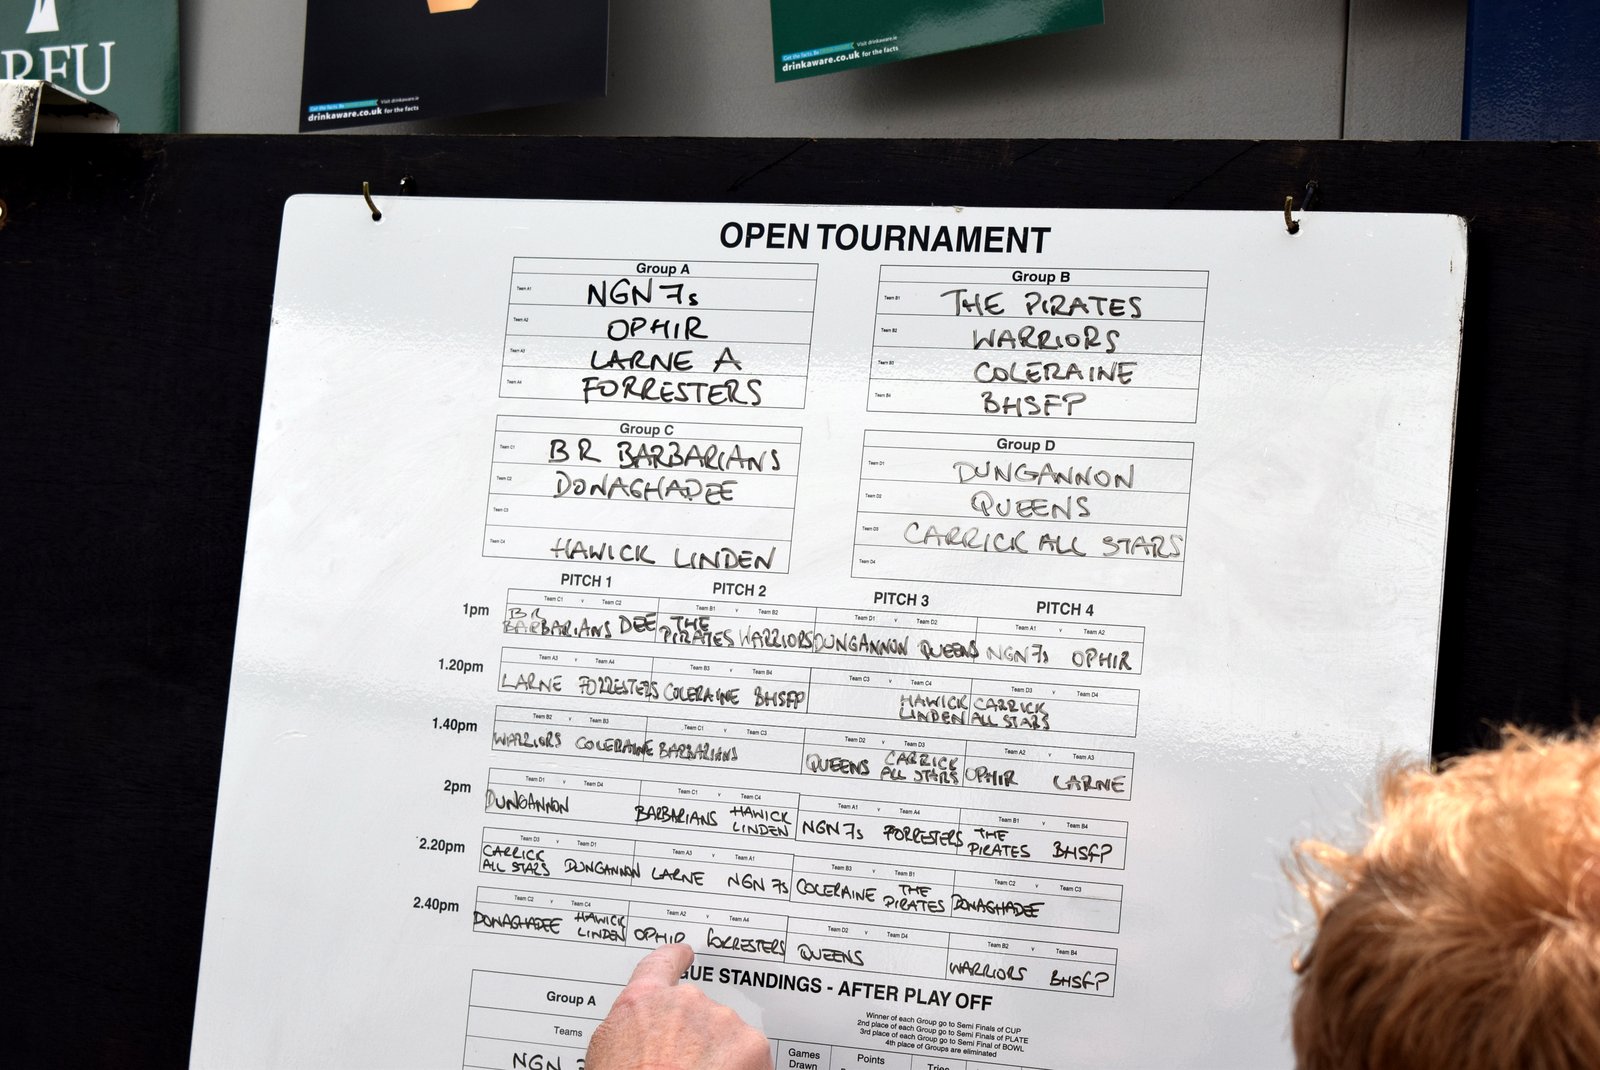 RFU
Get the facts. Be
Visit drinkaware.ie
drinkaware.co.uk for the facts
Get the facts. Be
Visit drinkaware.ie
drinkaware.co.uk for the facts
OPEN TOURNAMENT
Group A
Team A1 NGN 7s
Team A2 OPHIR
Team A3 LARNE A
Team A4 FORRESTERS
Group B
Team B1 THE PIRATES
Team B2 WARRIORS
Team B3 COLERAINE
Team B4 BHSFP
Group C
Team C1 BR BARBARIANS
Team C2 DONAGHADEE
Team C3
Team C4 HAWICK LINDEN
Group D
Team D1 DUNGANNON
Team D2 QUEENS
Team D3 CARRICK ALL STARS
Team D4
PITCH 1 PITCH 2 PITCH 3 PITCH 4
1pm
Team C1 v Team C2 Team B1 v Team B2 Team D1 v Team D2 Team A1 v Team A2
BR BARBARIANS DEE THE PIRATES WARRIORS DUNGANNON QUEENS NGN 7s OPHIR
1.20pm
Team A3 v Team A4 Team B3 v Team B4 Team C3 v Team C4 Team D3 v Team D4
LARNE FORRESTERS COLERAINE BHSFP HAWICK LINDEN CARRICK ALL STARS
1.40pm
Team B2 v Team B3 Team C1 v Team C3 Team D2 v Team D3 Team A2 v Team A3
WARRIORS COLERAINE BARBARIANS QUEENS CARRICK ALL STARS OPHIR LARNE
2pm
Team D1 v Team D4 Team C1 v Team C4 Team A1 v Team A4 Team B1 v Team B4
DUNGANNON BARBARIANS HAWICK LINDEN NGN 7s FORRESTERS THE PIRATES BHSFP
2.20pm
Team D3 v Team D1 Team A3 v Team A1 Team B3 v Team B1 Team C2 v Team C3
CARRICK ALL STARS DUNGANNON LARNE NGN 7s COLERAINE THE PIRATES DONAGHADEE
2.40pm
Team C2 v Team C4 Team A2 v Team A4 Team D2 v Team D4 Team B2 v Team B4
DONAGHADEE HAWICK LINDEN OPHIR FORRESTERS QUEENS WARRIORS BHSFP
GUE STANDINGS - AFTER PLAY OFF
Winner of each Group go to Semi Finals of CUP
2nd place of each Group go to Semi Finals of PLATE
3rd place of each Group go to Semi Final of BOWL
4th place of Groups are eliminated
Group A
Teams
Games Drawn
Points
Tries
NGN 7